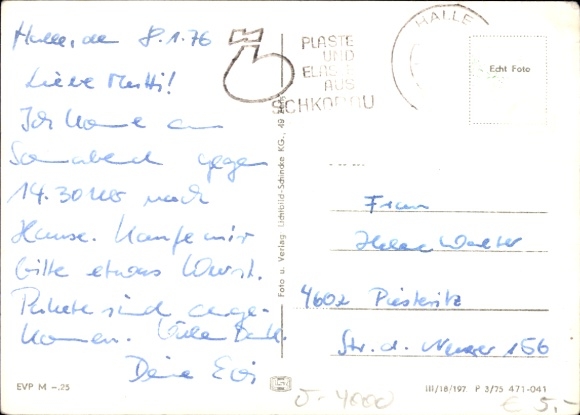 Halle, den 8.1.76
Liebe Mutti!
Ich komme am
Sonnabend gegen
14.30 Uhr nach
Hause. Kaufe mir
bitte etwas Wurst.
Pakete sind ange-
kommen. Vielen Dank.
Deine Evi
EVP M –.25
PLASTE
UND
ELAST
AUS
SCHKOPAU
HALLE
Echt Foto
Foto u. Verlag Lichtbild-Schincke KG., 49 Zeitz
Frau
Walter
4602 Piesteritz
Str. d. Neuer 156
III/18/197. P 3/75 471-041
J-4600
€ 5,-